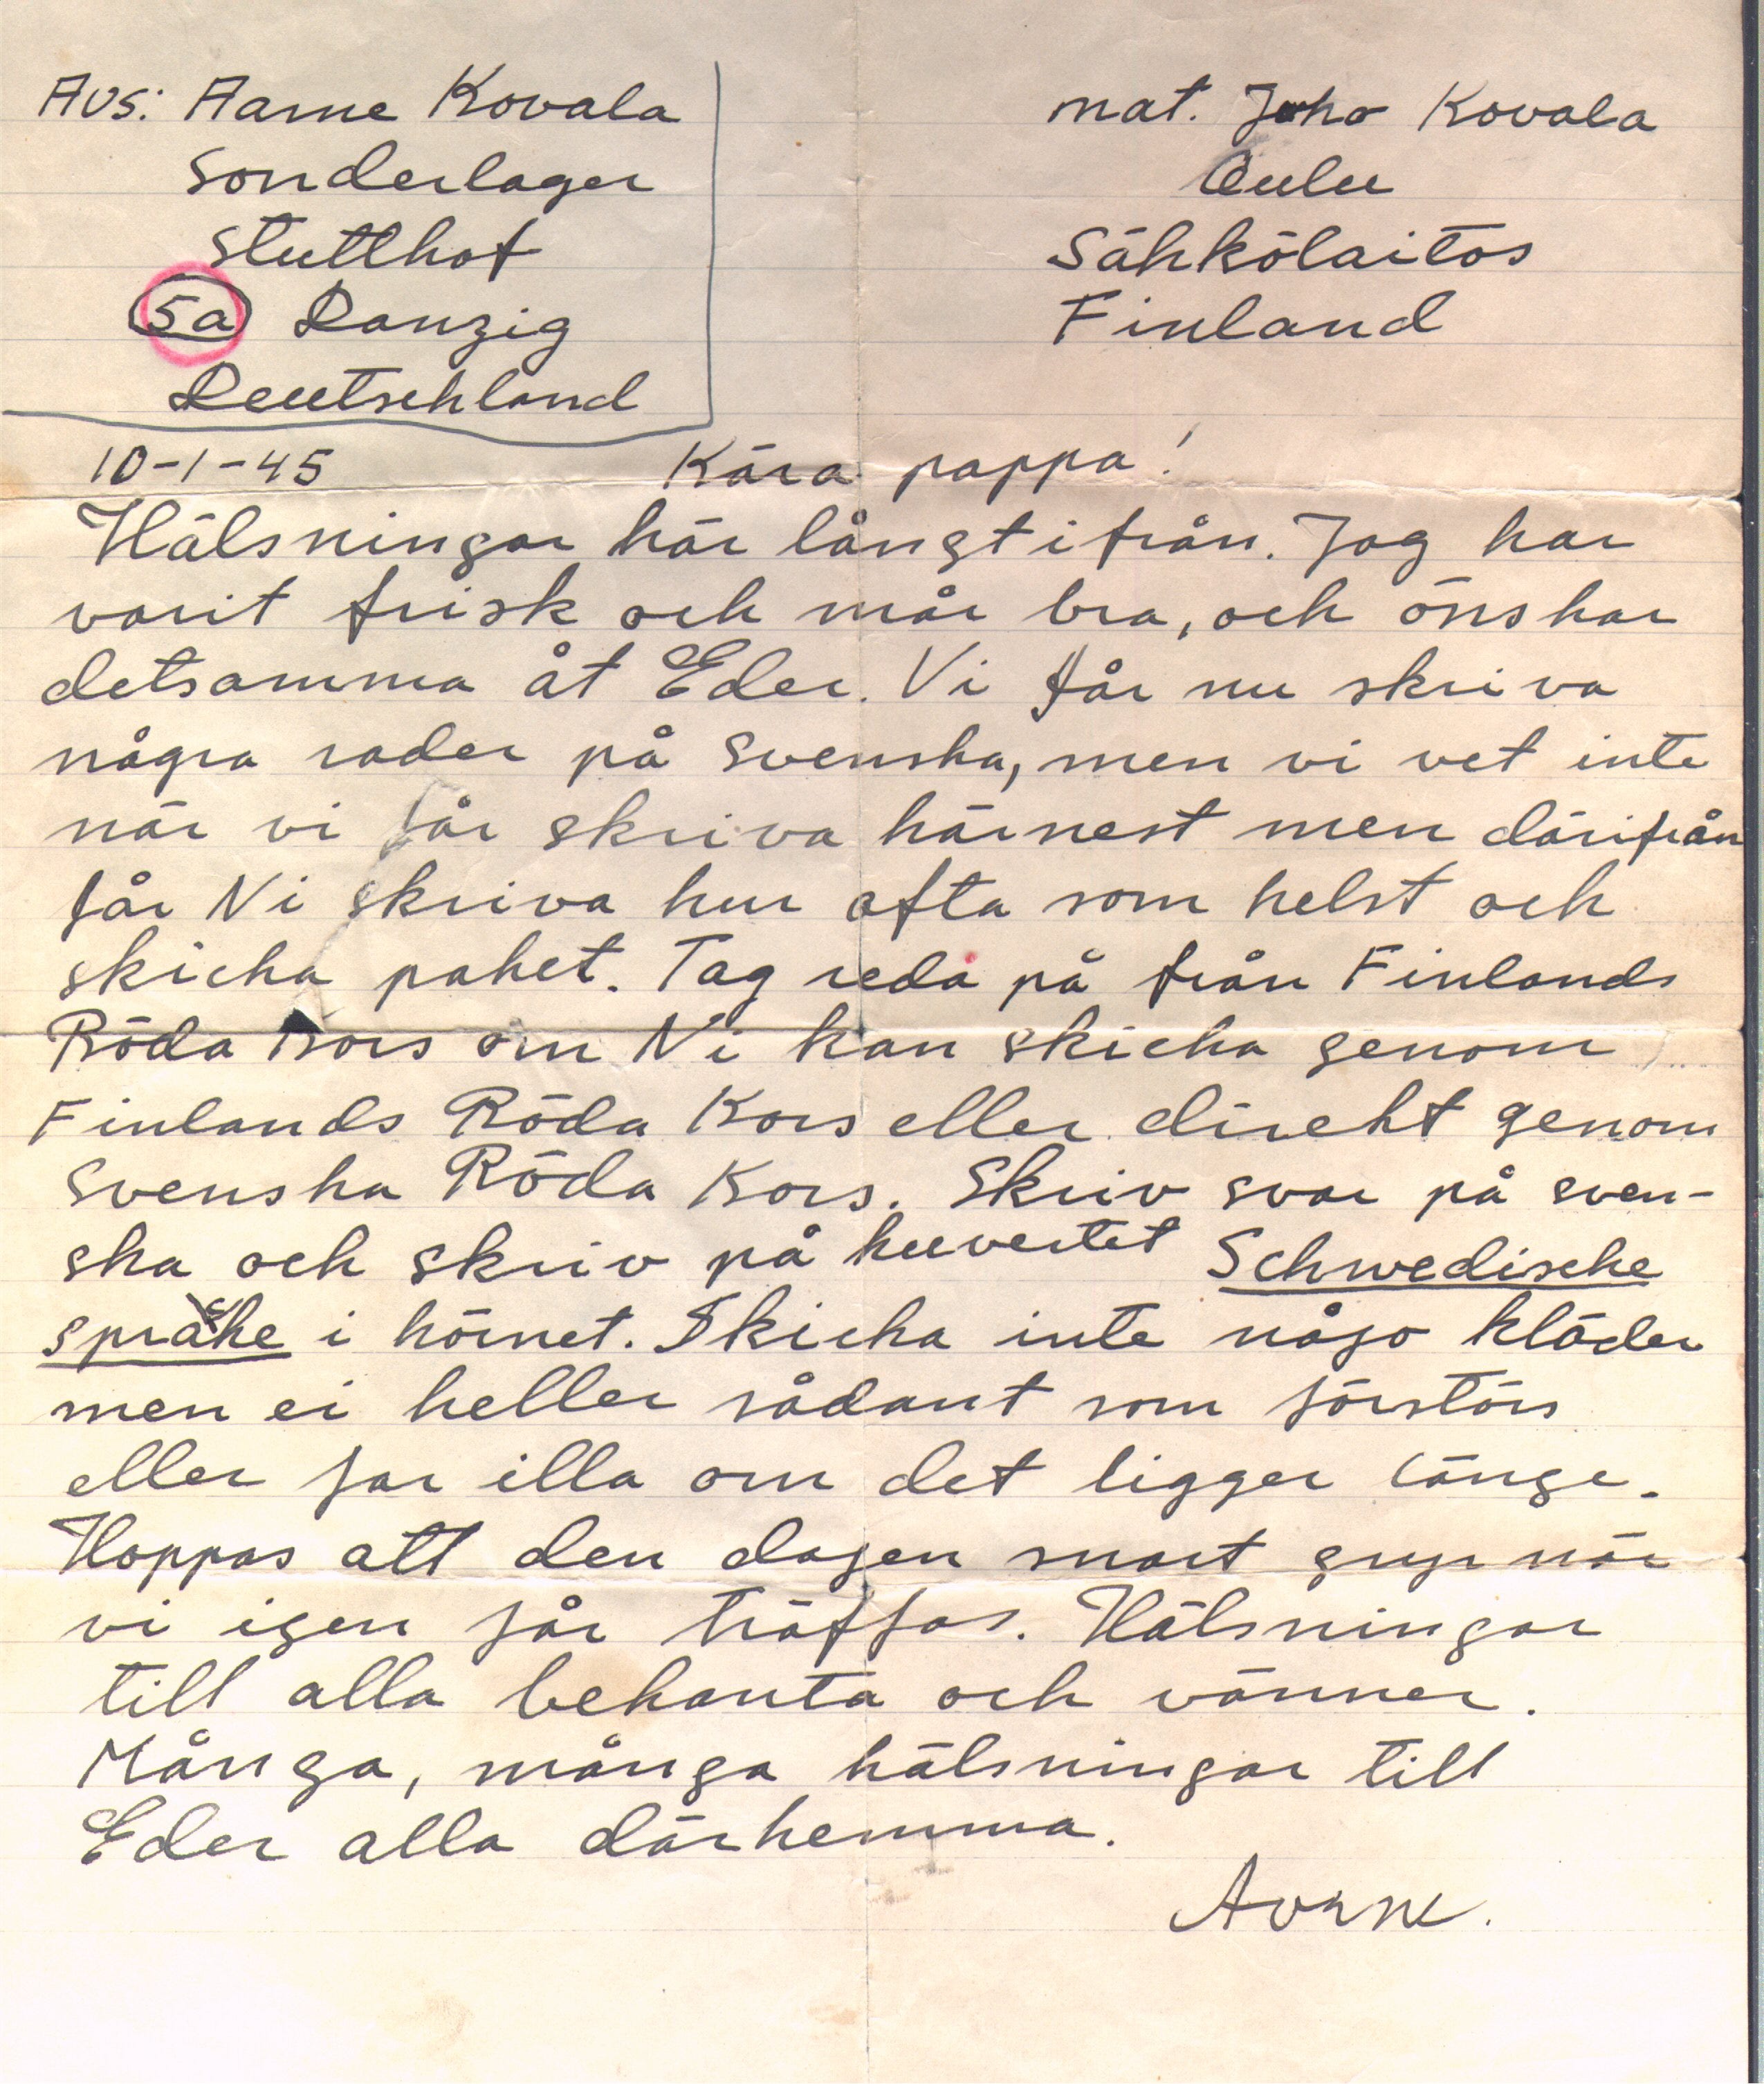 Avs: Aarne Kovala
Sonderlager
Stutthof
5a Danzig
Deutschland
mat. Juho Kovala
Oulu
Sähkölaitos
Finland
10-1-45 Kära pappa!
Hälsningar här långt ifrån. Jag har
varit frisk och mår bra, och önskar
detsamma åt Eder. Vi får nu skriva
några rader på Svenska, men vi vet inte
när vi får skriva härnest men därifrån
får Ni skriva hur ofta som helst och
skicka paket. Tag reda på från Finlands
Röda Kors om Ni kan skicka genom
Finlands Röda Kors eller direkt genom
Svenska Röda Kors. Skriv svar på sven-
ska och skriv på kuvertet Schwedische
sprache i hörnet. Skicka inte någo kläder
men ei heller sådant som förstörs
eller far illa om det ligger länge.
Hoppas att den dagen snart gryr när
vi igen får träffas. Hälsningar
till alla bekanta och vänner.
Många, många hälsningar till
Eder alla därhemma.
Aarne.